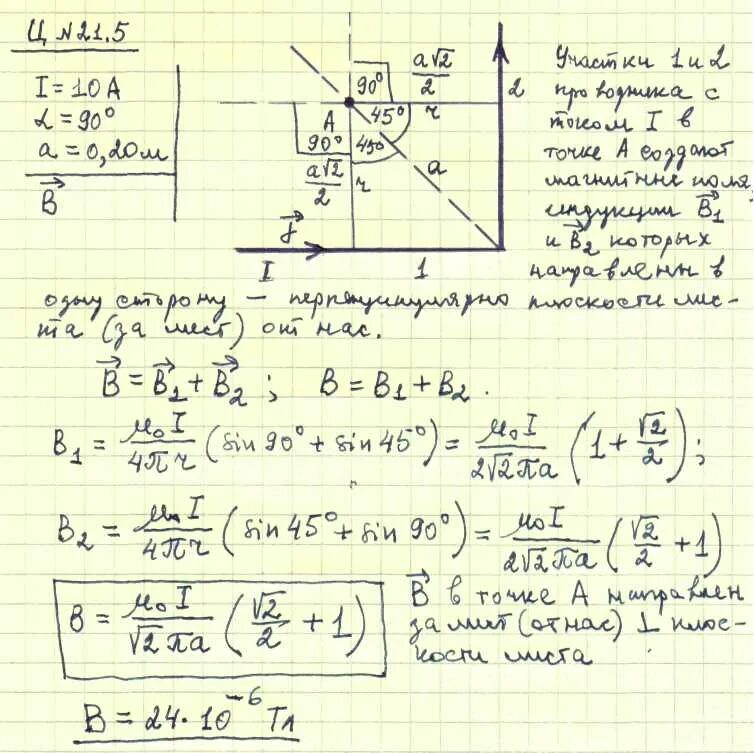 Ц №21.5
I = 10 А
α = 90°
a = 0,20м
B⃗
90°
a√2/2
r
2
45°
А
90°
45°
a
a√2/2
r
j⃗
I
1
Участки 1 и 2
проводника с
током I в
точке А создают
магнитные поля,
индукции B⃗₁
и B⃗₂ которых
направлены в
одну сторону – перпендикулярно плоскости лис-
та (за лист) от нас.
B⃗ = B⃗₁ + B⃗₂ ; B = B₁ + B₂ .
B₁ = μ₀I/4πr (sin 90° + sin 45°) = μ₀I/2√2πa (1 + √2/2) ;
B₂ = μ₀I/4πr (sin 45° + sin 90°) = μ₀I/2√2πa (√2/2 + 1)
B = μ₀I/√2πa (√2/2 + 1)
B⃗ в точке А направлен
за лист (от нас) ⊥ плос-
кости листа
B = 24·10⁻⁶ Тл